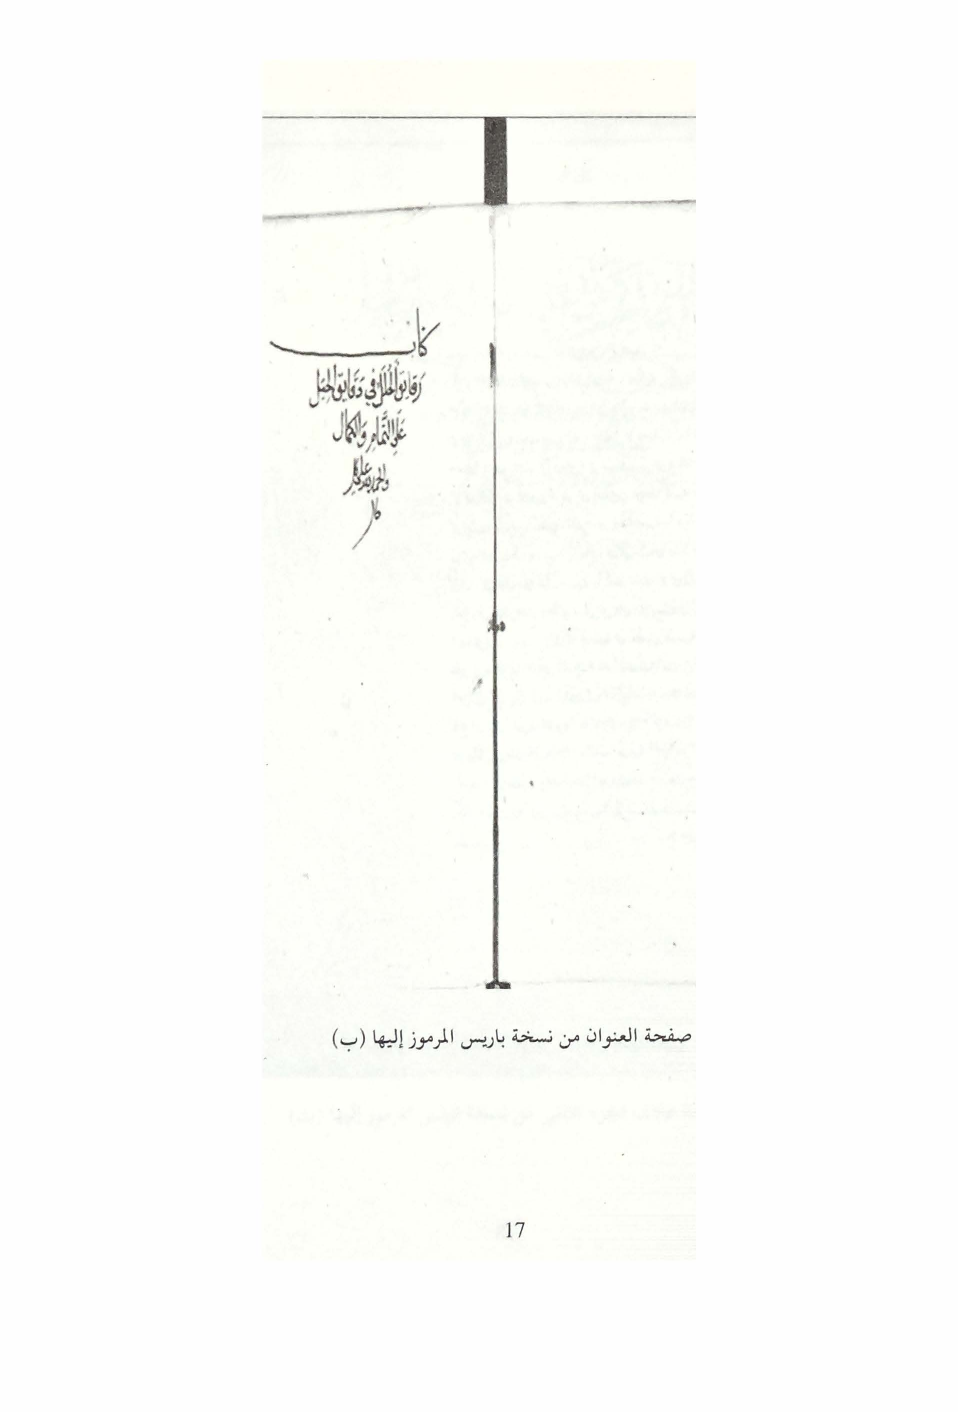 كتاب
رَقايق الحُلل في دَقايق الحِيَل
عَلى التَّمامِ وَالكمال
والحمد لله على كل
حال
صفحة العنوان من نسخة باريس المرموز إليها (ب)
17